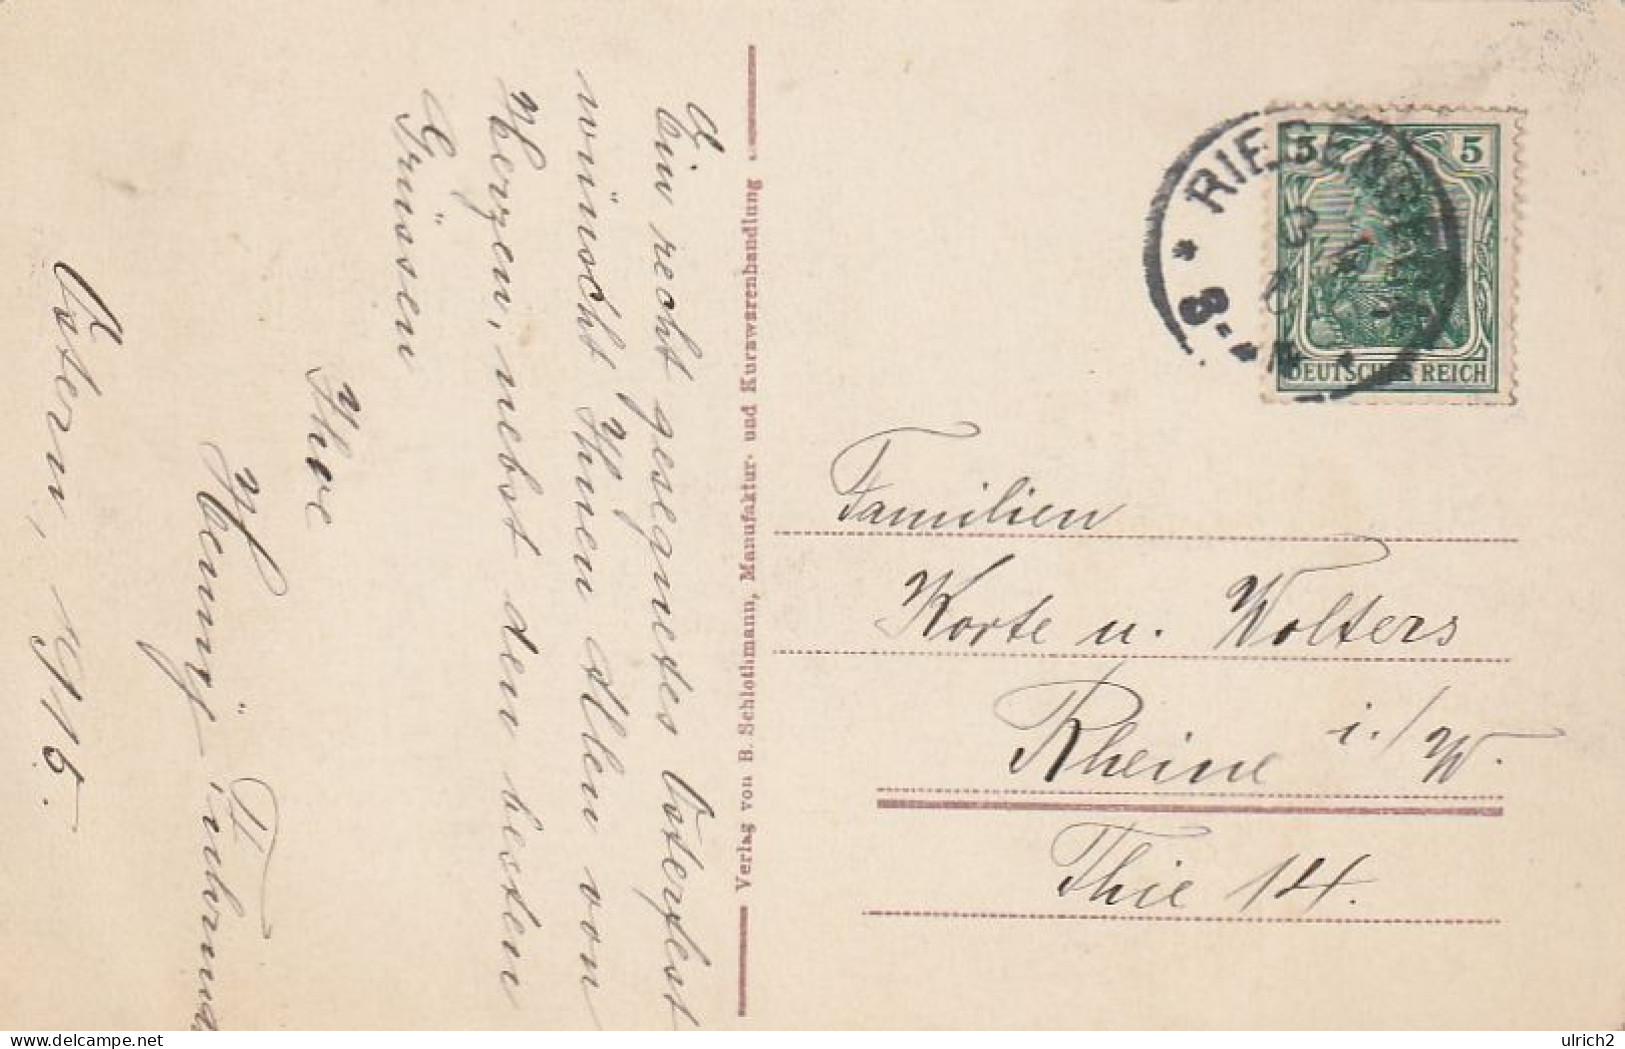 Ein recht gesegnetes Osterfest
wünscht Ihnen Allen von
Herzen, nebst den besten
Grüssen
Ihre
Henny
Ostern, 1915.
Verlag von B. Schlothmann, Manufaktur- und Kurzwarenhandlung
* RIESENBECK *
8-
5 5
DEUTSCHES REICH
Familien
Korte u. Wolters
Rheine i./W.
Thie 14.
www.delcampe.net
ulrich2